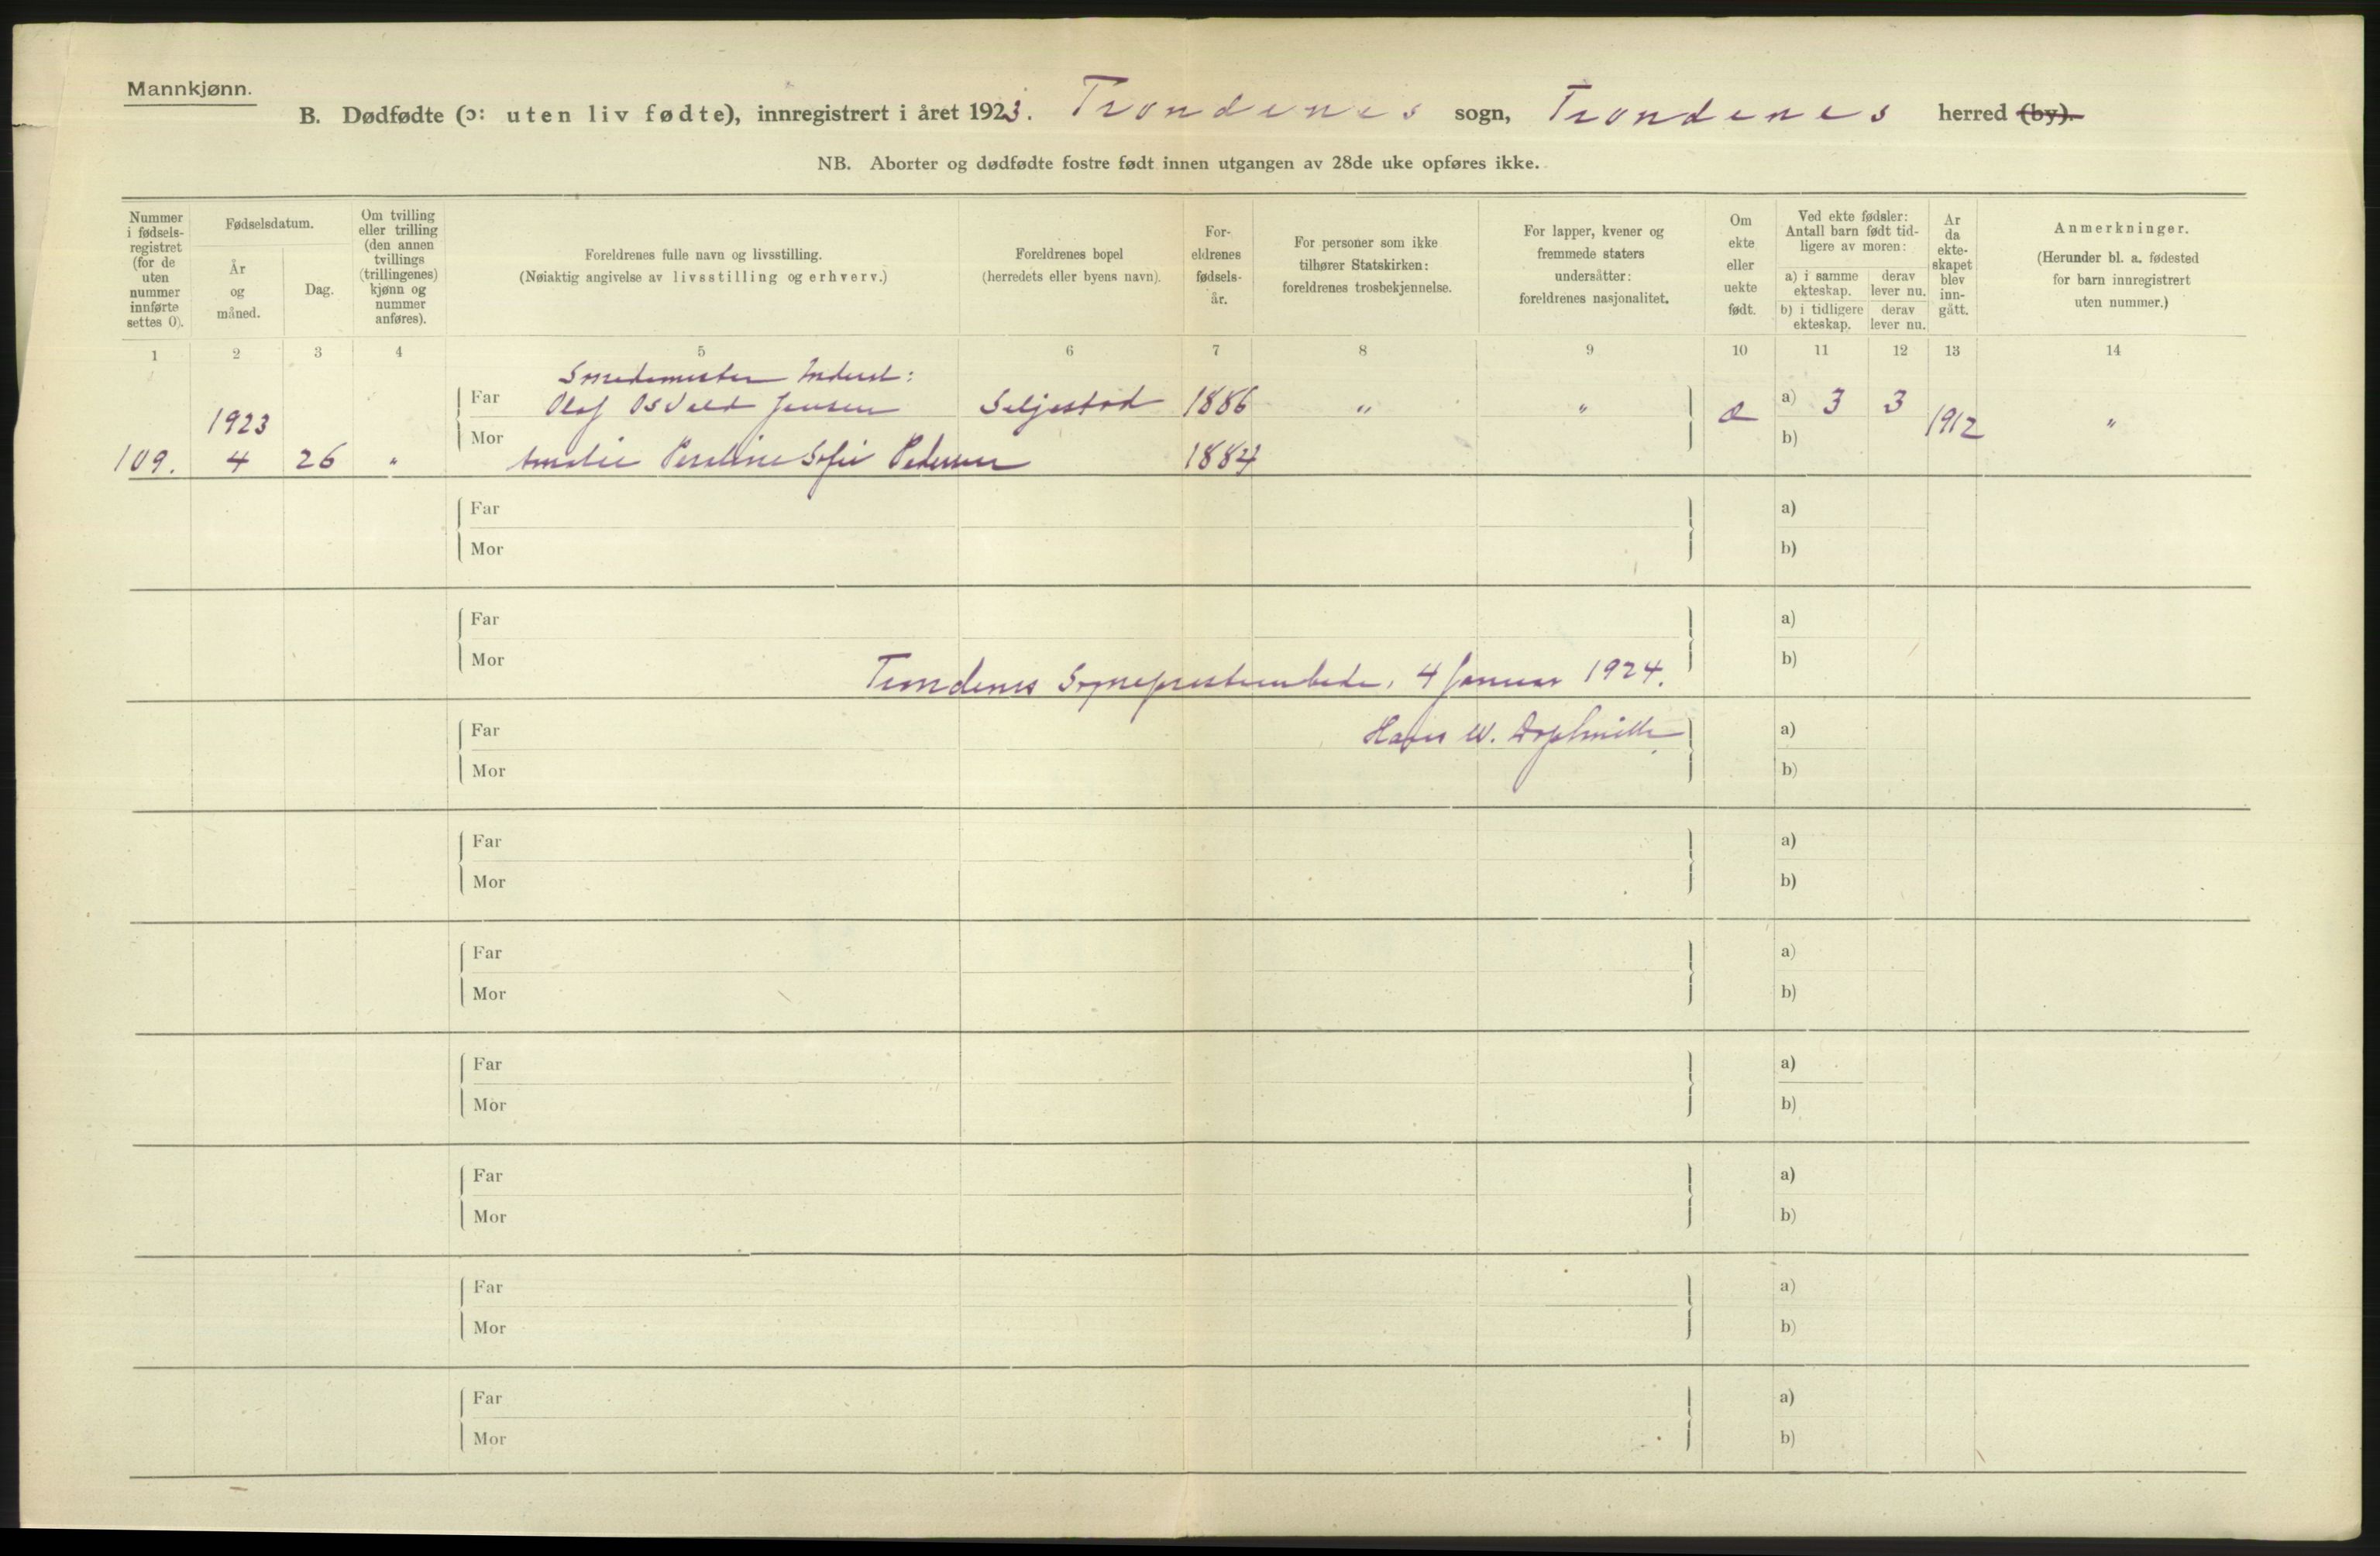 Mannkjønn.
B. Dødfødte (ɔ: uten liv fødte), innregistrert i året 1923. Trondenes sogn, Trondenes herred (by).
NB. Aborter og dødfødte fostre født innen utgangen av 28de uke opføres ikke.
Nummer i fødselsregistret (for de uten nummer innførte settes 0).
Fødselsdatum.
År og måned.
Dag.
Om tvilling eller trilling (den annen tvillings (trillingenes) kjønn og nummer anføres).
Foreldrenes fulle navn og livsstilling.
(Nøiaktig angivelse av livsstilling og erhverv.)
Foreldrenes bopel
(herredets eller byens navn).
Foreldrenes fødselsår.
For personer som ikke tilhører Statskirken: foreldrenes trosbekjennelse.
For lapper, kvener og fremmede staters undersåtter: foreldrenes nasjonalitet.
Om ekte eller uekte født.
Ved ekte fødsler: Antall barn født tidligere av moren:
a) i samme ekteskap. derav lever nu.
b) i tidligere ekteskap. derav lever nu.
År da ekteskapet blev inngått.
Anmerkninger.
(Herunder bl. a. fødested for barn innregistrert uten nummer.)
1 2 3 4 5 6 7 8 9 10 11 12 13 14
Smedemester
Far Olaf Osvald Jensen Seljestad 1886 " " a) 3 3
1923 1912 "
Mor b)
109. 4 26 " Amalie Sofie Pedersen 1884
Far a)
Mor b)
Far a)
Mor b)
Trondenes Sogneprestembede, 4 Januar 1924.
Hans W.
Far a)
Mor b)
Far a)
Mor b)
Far a)
Mor b)
Far a)
Mor b)
Far a)
Mor b)
Far a)
Mor b)
Far a)
Mor b)